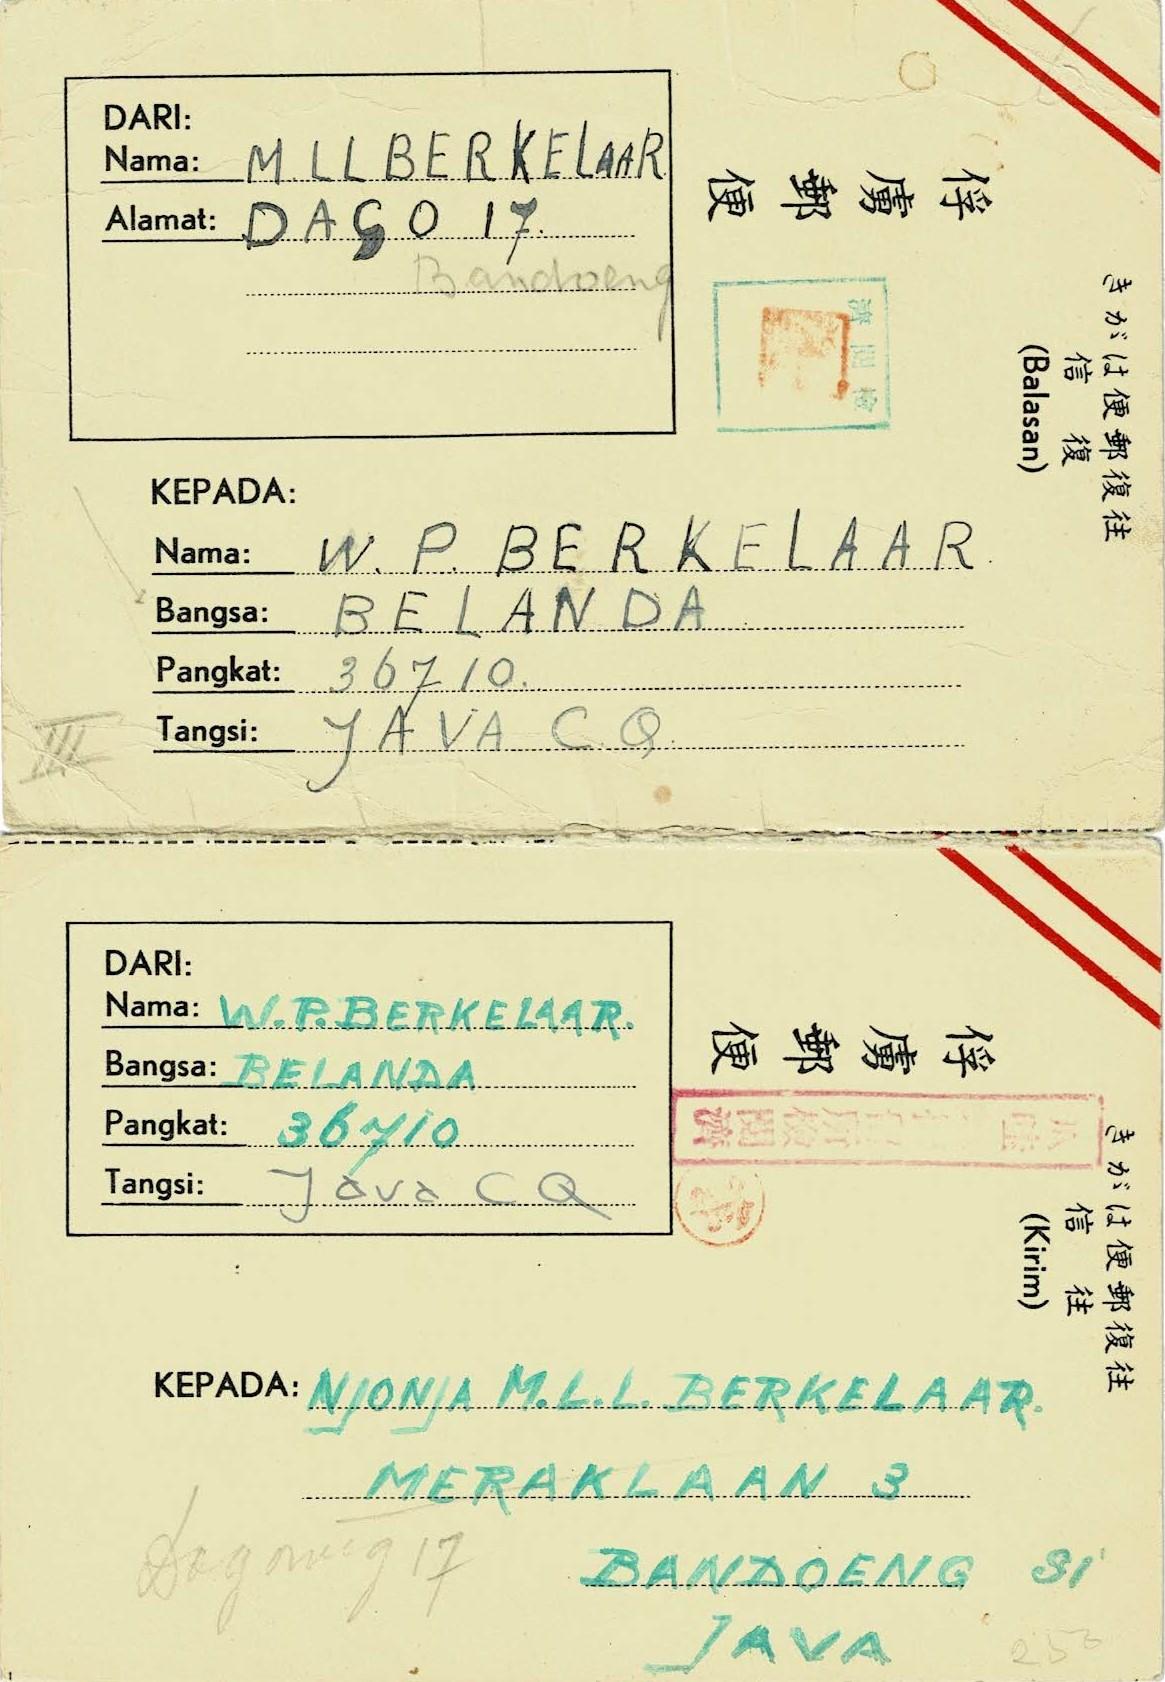 DARI:
Nama: M.L L BERKELAAR
Alamat: DAGO 17.
Bandoeng
俘虜郵便
検閲済
往復郵便はがき
復信
(Balasan)
KEPADA:
Nama: W. P. BERKELAAR
Bangsa: BELANDA
Pangkat: 36710.
Tangsi: JAVA C.Q.
III
DARI:
Nama: W.P. BERKELAAR.
Bangsa: BELANDA
Pangkat: 36710
Tangsi: Java C Q
俘虜郵便
検閲済
往復郵便はがき
往信
(Kirim)
KEPADA: NJONJA M.L.L. BERKELAAR.
MERAKLAAN 3
Dagoweg 17
BANDOENG 31
JAVA